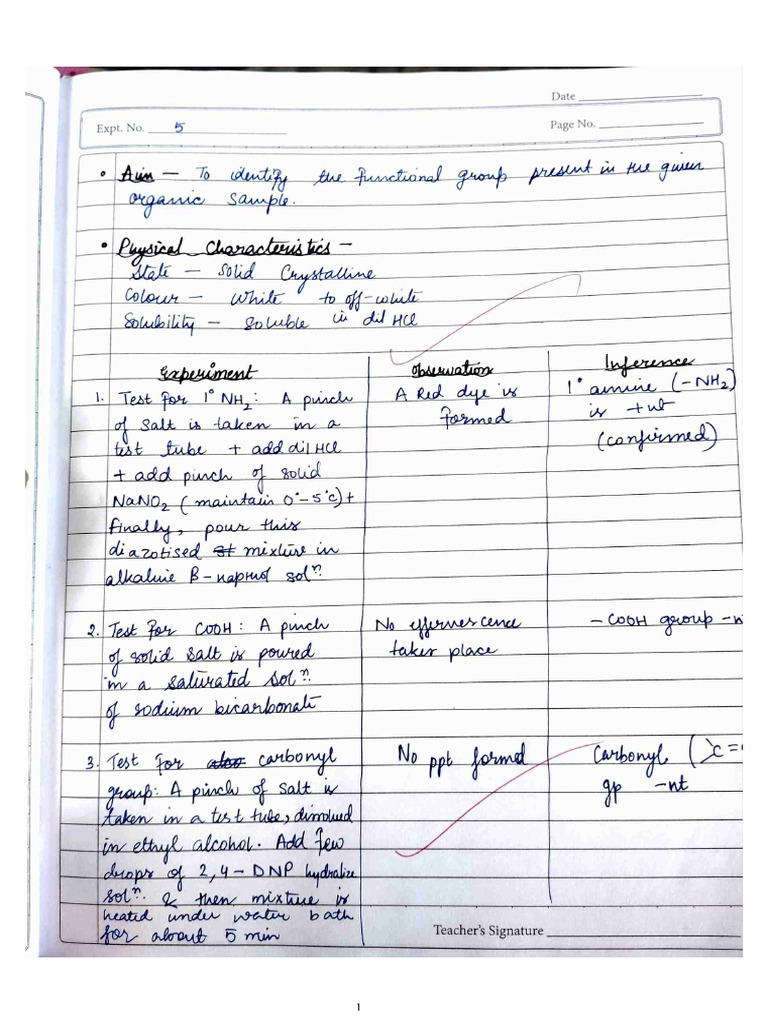 Date
Expt. No. 5
Page No.
• Aim — To identify the functional group present in the given
organic sample.
• Physical Characteristics —
State — Solid Crystalline
Colour — White to off-white
Solubility — Soluble in dil HCl
Experiment
1. Test for 1° NH2: A pinch
of salt is taken in a
test tube + add dil HCl
+ add pinch of solid
NaNO2 (maintain 0°-5°c) +
finally, pour this
diazotised mixture in
alkaline β-napthol solⁿ.
Observation
A Red dye is
formed
Inference
1° amine (-NH2)
is +nt
(confirmed)
2. Test for COOH: A pinch
of solid salt is poured
in a saturated solⁿ.
of sodium bicarbonate
No effervescence
takes place
- COOH group -n
3. Test for carbonyl
group: A pinch of salt is
taken in a test tube, dissolved
in ethyl alcohol. Add few
drops of 2,4-DNP hydralize
solⁿ. & then mixture is
heated under water bath
for about 5 min
No ppt formed
Carbonyl (>c=
gp -nt
Teacher's Signature
1